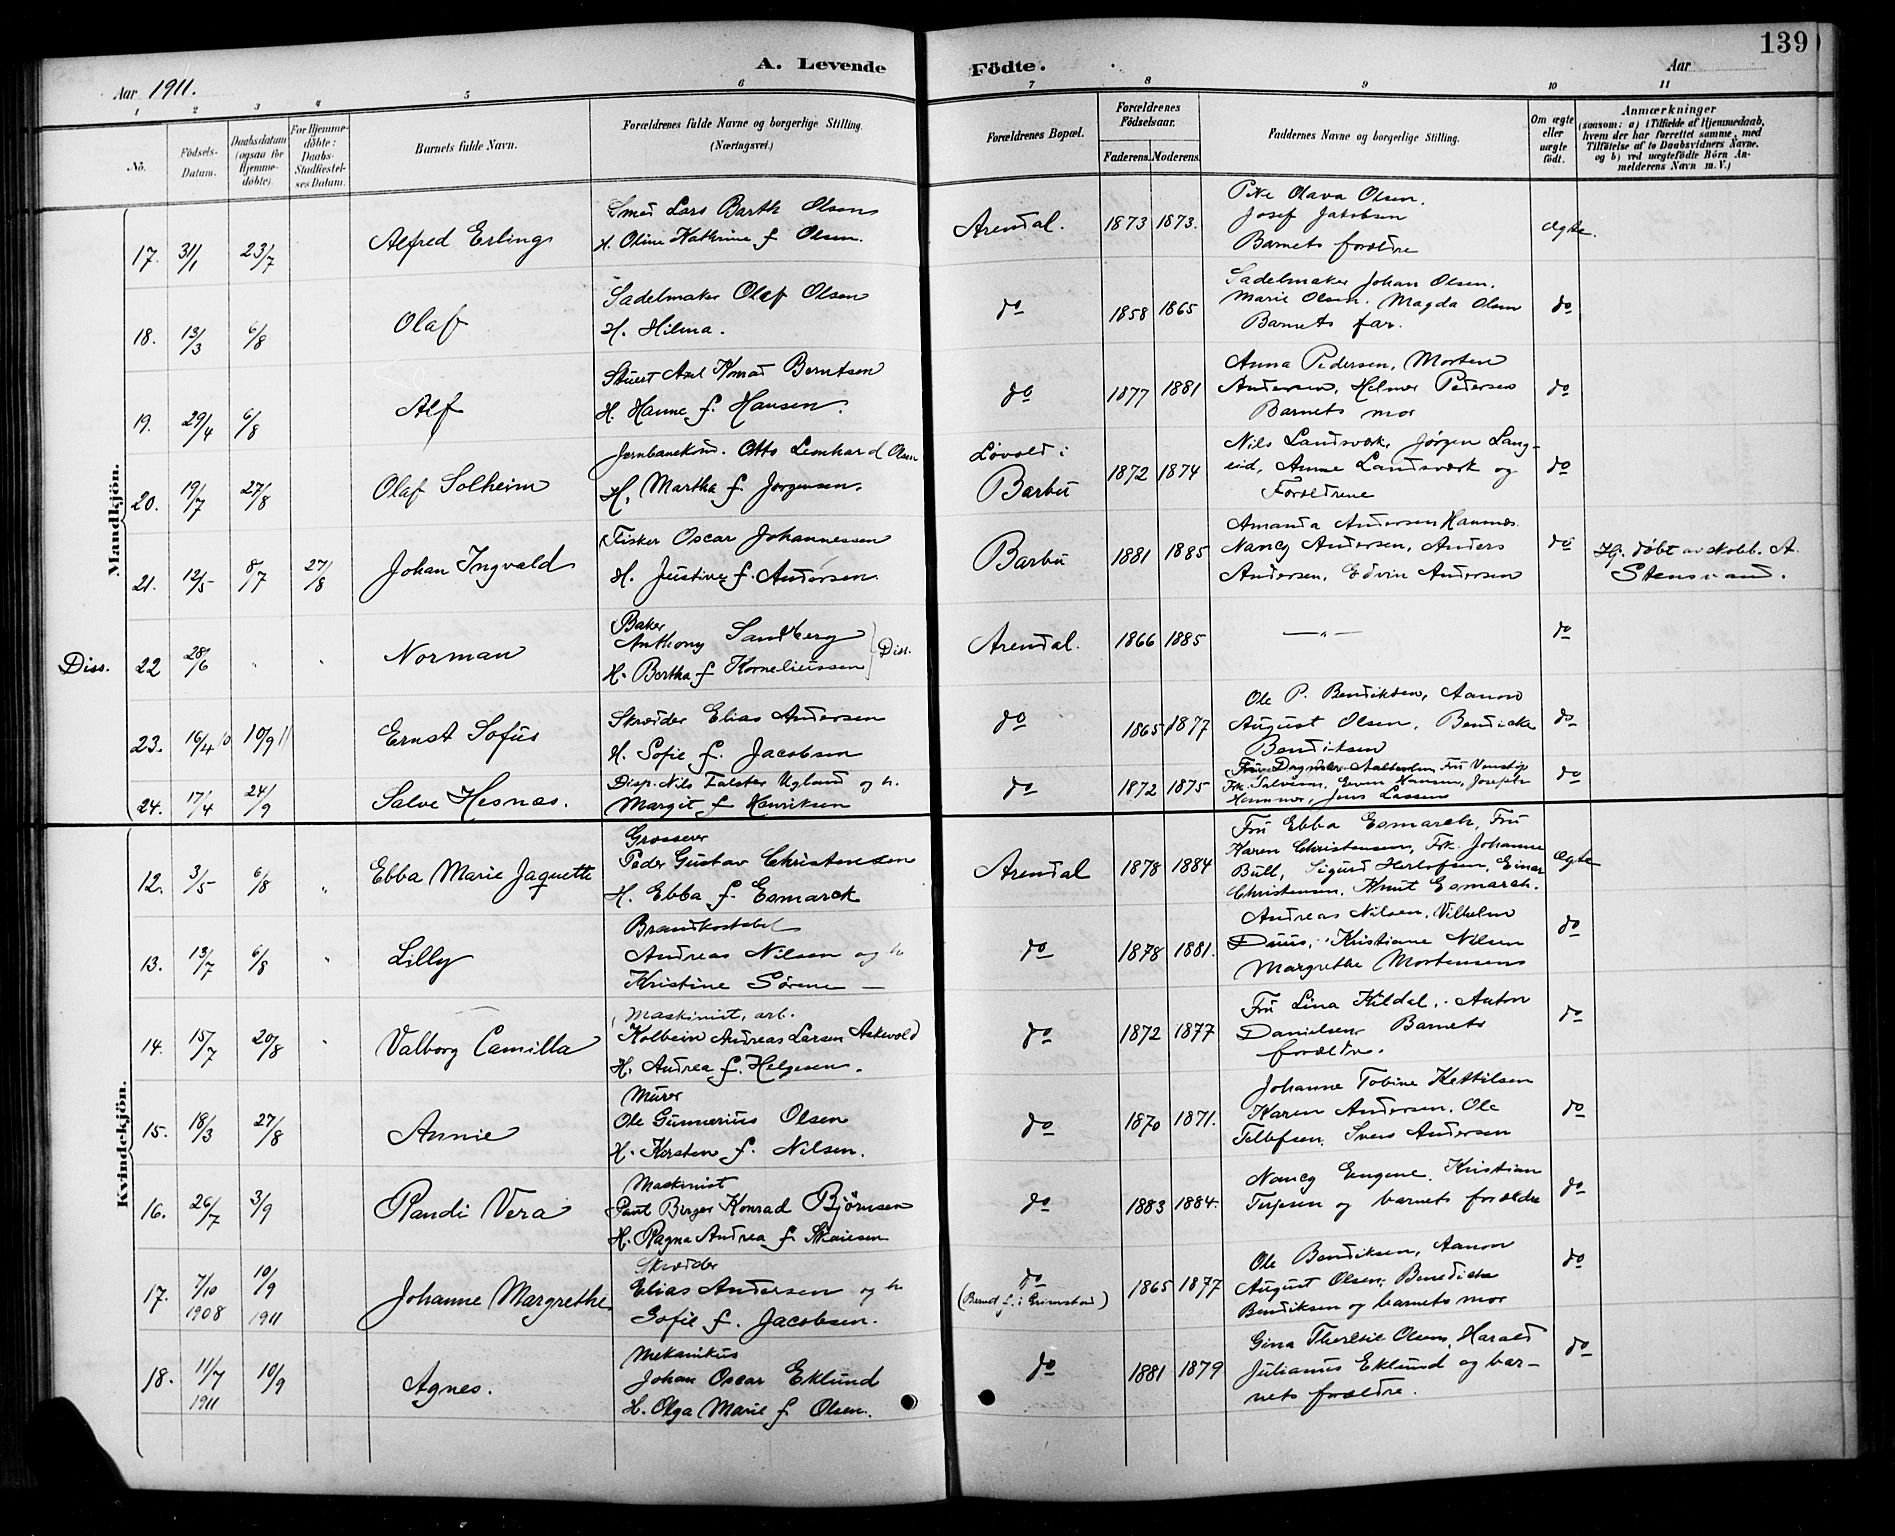 139
A. Levende Födte.
Aar 1911.
Aar
1 2 3 4 5 6 7 8 9 10 11
No.
Födsels-Datum.
Daabsdatum (ogsaa for Hjemmedöbte).
For Hjemmedöbte: Daabs-Stadfæstelses Datum.
Barnets fulde Navn.
Forældrenes fulde Navne og borgerlige Stilling.
(Næringsvei.)
Forældrenes Bopæl.
Forældrenes Födselsaar.
Faderens. Moderens.
Faddernes Navne og borgerlige Stilling.
Om ægte eller uægte født.
Anmærkninger
(saasom: a) i Tilfælde af Hjemmedaab, hvem der har forrettet samme, med Tilføielse af to Daabsvidners Navne, og b) ved uægtefödte Börn Anmelderens Navn m. V.)
Mandkjön.
17. 31/1 23/7 Alfred Erling
Smed Lars Barth Olsen
H. Oline Kathrine f. Olsen.
Arendal. 1873 1873.
Olava Olsen.
Josef Jakobsen
Barnets forældre
ægte.
18. 13/3 6/8 Olaf
Sadelmaker Olaf Olsen
H. Hilma.
do 1858 1865
Sadelmaker Johan Olsen.
Marie Olsen. Magda Olsen
Barnets far.
do
19. 29/4 6/8 Alf
Stuert Axel Konrad Berntsen
H. Hanne f. Hansen.
do 1877 1881
Anna Pedersen, Morten
Andersen, Helmer Pedersen
Barnets mor
do
20. 19/7 27/8 Olaf Solheim
Jernbanekond. Otto Lenhard Olsen
H. Martha f. Jørgensen.
Løvold i
Barbu
1872 1874
Nils Landsværk, Jørgen Lang-
eid, Anne Landsværk og
Forældrene
do
21. 12/5 8/7 27/8 Johan Ingvald
Fisker Oscar Johannessen
H. Justine f. Andersen.
Barbu 1881 1885
Amanda Andersen Hannes.
Nancy Andersen, Anders
Andersen, Edvin Andersen
do
Hj. døbt av skolb. A.
Diss. 22 28/6 " " Norman
Baker
Anthony Sandberg
H. Bertha f Korneliussen
Diss.
Arendal. 1866 1885 — " —
do
23. 16/4 10 10/9 11 Ernst Sofus
Skræder Elias Andersen
H. Sofie f. Jacobsen
do 1865 1877
Ole P. Bendiksen, Aanon
August Olsen, Bendicte
Bendiksen
do
24. 17/4 24/9 Salve Hesnæs.
Disp. Nils Falster Ugland og h.
Margit f Henriksen
do 1872 1875
Hammer, Jens Lassen
do
Kvindekjön.
12. 3/5 6/8 " Ebba Marie Jaquette
Grosserer
Peder Gustav Christensen
H. Ebba f. Esmarck
Arendal 1878 1884
Fru Ebba Esmarch, Fru
Karen Christensen, Frk. Johanne
Bull, Sigurd Herlofsen, Einar
Christensen, Knut Esmarch.
ægte
13. 13/7 6/8 " Lilly
Brandkonstabel
Andreas Nilsen og h
Kristine Sørene —
do 1878 1881.
Andreas Nilsen, Vilhelm
Duus, Kristiane Nilsen
Margrethe Mortensen
do
14. 15/7 20/8 " Valborg Camilla
Maskinist, arb.
Kolbein Andreas Larsen Askevold
H. Andrea f. Helgesen.
do 1872 1877
Fru Lina Kildal, Anton
Danielsen, Barnets
forældre.
do
15. 18/3 27/8 Annie
Murer
Ole Gunnerius Olsen
H. Kirsten f. Nilsen.
do 1870 1871.
Johanne Tobine Kettilsen
Karen Andersen. Ole
Tellefsen, Sven Andersen
do
16. 26/7 3/9 Randi Vera
Maskinist
Paul Birger Konrad Bjørnsen
H. Ragna Andrea f.
do 1883 1884.
Nancy Eugene. Kristian
Terjesen og barnets forældre
do
17. 7/10 1908 10/9 1911 Johanne Margrethe
Skræder
Elias Andersen og h
Sofie f. Jacobsen.
do
f. i Grimstad)
1865 1877
Ole Bendiksen, Aanon
August Olsen, Benedicte
Bendiksen og barnets mor
do
18. 11/7 1911 10/9 Agnes.
Mekanikus
Johan Oscar Eklund
H. Olga Marie f Olsen.
do 1881 1879
Gina Olsen, Harald
Julianus Eklund og bar-
nets forældre.
do